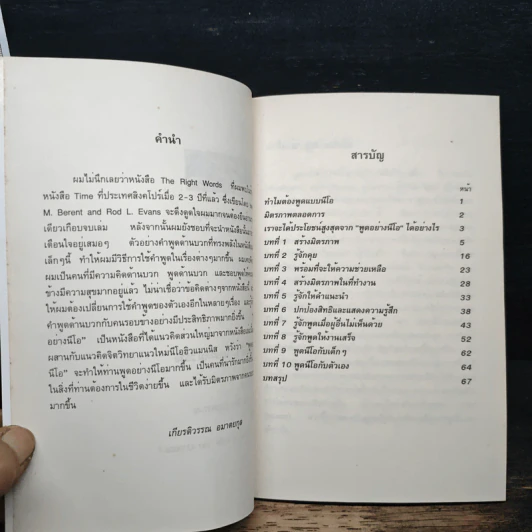 คำนำ
ผมไม่นึกเลยว่าหนังสือ The Right Words ที่ผมพบใน
หนังสือ Time ที่ประเทศสิงคโปร์เมื่อ 2-3 ปีที่แล้ว ซึ่งเขียนโดย
M. Berent and Rod L. Evans จะดึงดูดใจผมมากจนต้องอ่าน
เดียวเกือบจบเล่ม หลังจากนั้นผมยังชอบที่จะนำหนังสือ
เตือนใจอยู่เสมอๆ ตัวอย่างคำพูดด้านบวกที่ทรงพลังใน
เล็กๆนี้ ทำให้ผมมีวิธีการใช้คำพูดในเรื่องต่างๆมากขึ้น
ผมเป็นคนที่มีความคิดด้านบวก พูดด้านบวก และชอบพูด
ข้างมีความสุขมากอยู่แล้ว ไม่น่าเชื่อว่าข้อคิดต่างๆจาก
ให้ผมต้องเปลี่ยนการใช้คำพูดของตัวเองอีกในหลายๆเรื่อง
คำพูดด้านบวกกับคนรอบขางอย่างมีประสิทธิภาพมากยิ่งขึ้น
อย่างนีโอ" เป็นหนังสือที่ได้แนวคิดส่วนใหญ่มาจากหนังสือ
ผสานกับแนวคิดจิตวิทยาแนวใหม่นีโอฮิวแมนนิส หวังว่า
นีโอ" จะทำให้ท่านพูดอย่างนีโอมากขึ้น เป็นคนที่น่ารักมากยิ่งขึ้น
ในสิ่งที่ท่านต้องการในชีวิตง่ายขึ้น และได้รับมิตรภาพจาก
มากขึ้น
เกียรติวรรณ อมาตยกุล
สารบัญ
หน้า
ทำไมต้องพูดแบบนีโอ 1
มิตรภาพตลอดการ 2
เราจะได้ประโยชน์สูงสุดจาก "พูดอย่างนีโอ" ได้อย่างไร 3
บทที่ 1 สร้างมิตรภาพ 5
บทที่ 2 รู้จักคุย 16
บทที่ 3 พร้อมที่จะให้ความช่วยเหลือ 23
บทที่ 4 สร้างมิตรภาพในที่ทำงาน 28
บทที่ 5 รู้จักให้คำแนะนำ 33
บทที่ 6 ปกป้องสิทธิและแสดงความรู้สึก 38
บทที่ 7 รู้จักพูดเมื่อผู้อื่นไม่เห็นด้วย 43
บทที่ 8 รู้จักพูดให้งานเสร็จ 52
บทที่ 9 พูดนีโอกับเด็กๆ 62
บทที่ 10 พูดนีโอกับตัวเอง 64
บทสรุป 67